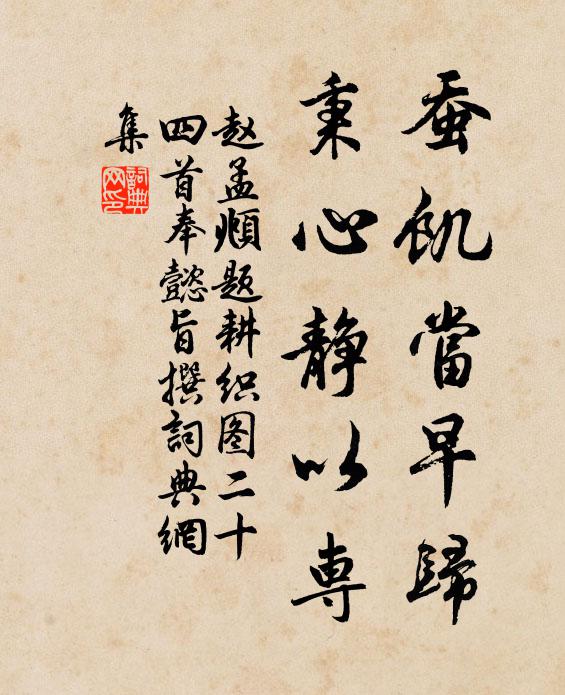 蚕飢當早歸
秉心静以専
赵孟頫题耕织图二十
四首奉懿旨撰詞典網
集
詞典
网印